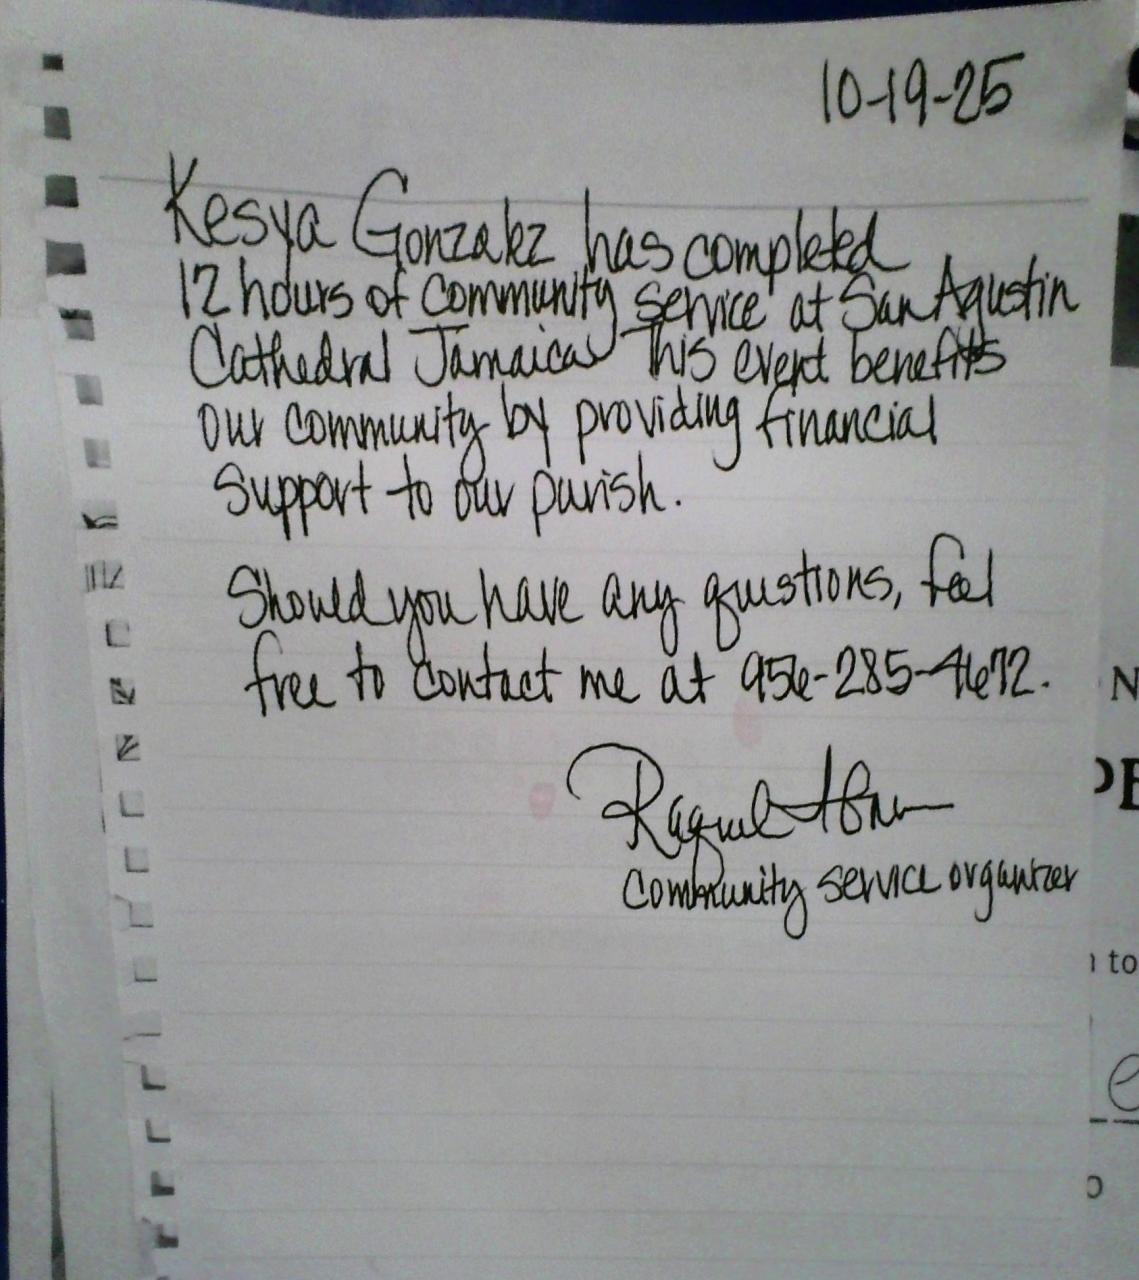 10-19-25
Kesya Gonzalez has completed
12 hours of community service at San Agustin
Cathedral Jamaica This event benefits
our community by providing financial
support to our parish.
Should you have any questions, feel
free to contact me at 956-285-4672.
Raquel
community service organizer
N
PE
to